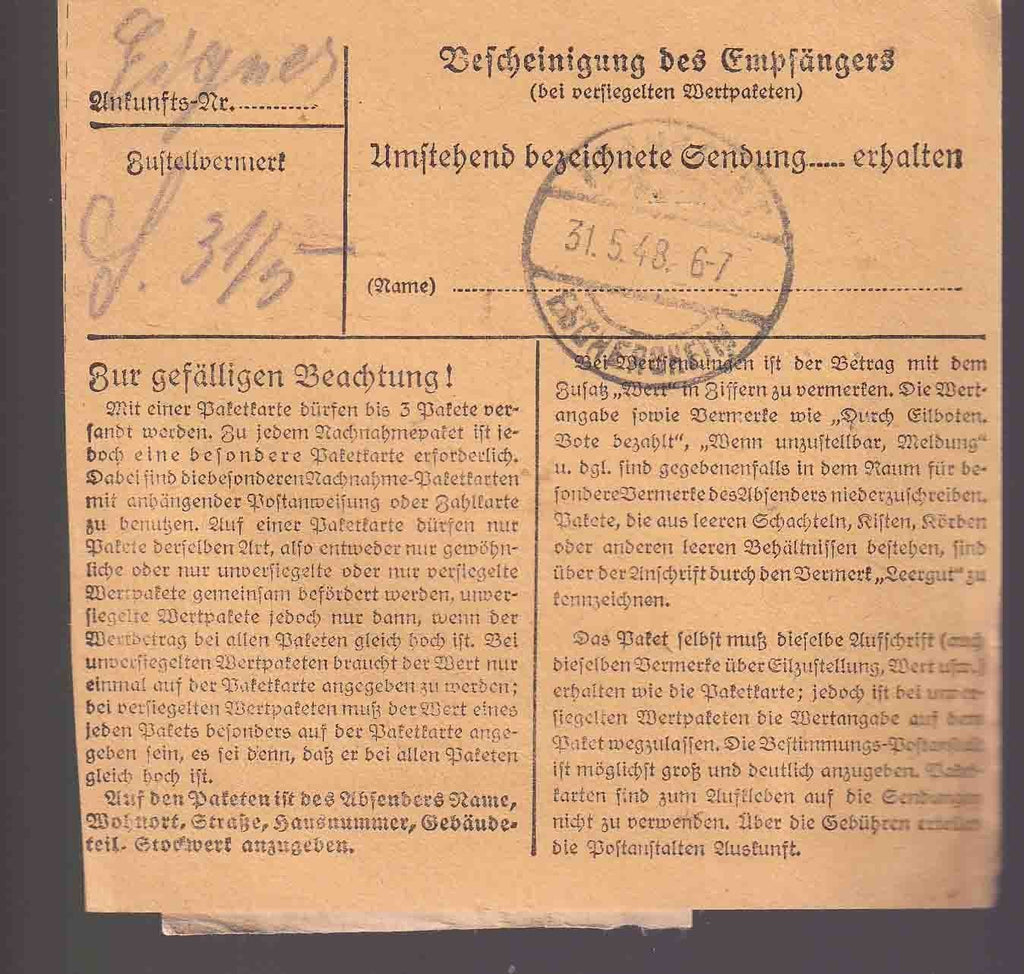 Eigner
Ankunfts-Nr. ............
Zustellvermerk
S. 31/5
Bescheinigung des Empfängers
(bei versiegelten Wertpaketen)
Umstehend bezeichnete Sendung..... erhalten
31.5.48. 6-7
ESCHERSHEIM
(Name) ..........
Zur gefälligen Beachtung!
Mit einer Paketkarte dürfen bis 3 Pakete ver-
sandt werden. Zu jedem Nachnahmepaket ist je-
doch eine besondere Paketkarte erforderlich.
Dabei sind die besonderen Nachnahme-Paketkarten
mit anhängender Postanweisung oder Zahlkarte
zu benutzen. Auf einer Paketkarte dürfen nur
Pakete derselben Art, also entweder nur gewöhn-
liche oder nur unversiegelte oder nur versiegelte
Wertpakete gemeinsam befördert werden, unver-
siegelte Wertpakete jedoch nur dann, wenn der
Wertbetrag bei allen Paketen gleich hoch ist. Bei
unversiegelten Wertpaketen braucht der Wert nur
einmal auf der Paketkarte angegeben zu werden;
bei versiegelten Wertpaketen muß der Wert eines
jeden Pakets besonders auf der Paketkarte ange-
geben sein, es sei denn, daß er bei allen Paketen
gleich hoch ist.
Auf den Paketen ist des Absenders Name,
Wohnort, Straße, Hausnummer, Gebäude-
teil, Stockwerk anzugeben.
Bei Wertsendungen ist der Betrag mit dem
Zusatz „Wert“ in Ziffern zu vermerken. Die Wert-
angabe sowie Vermerke wie „Durch Eilboten.
Bote bezahlt“, „Wenn unzustellbar, Meldung“
u. dgl. sind gegebenenfalls in dem Raum für be-
sondere Vermerke des Absenders niederzuschreiben.
Pakete, die aus leeren Schachteln, Kisten, Körben
oder anderen leeren Behältnissen bestehen, sind
über der Anschrift durch den Vermerk „Leergut“ zu
kennzeichnen.
Das Paket selbst muß dieselbe Aufschrift (auch
dieselben Vermerke über Eilzustellung, Wert usw.)
erhalten wie die Paketkarte; jedoch ist bei unver-
siegelten Wertpaketen die Wertangabe auf dem
Paket wegzulassen. Die Bestimmungs-Postanstalt
ist möglichst groß und deutlich anzugeben. Paket-
karten sind zum Aufkleben auf die Sendungen
nicht zu verwenden. Über die Gebühren erteilen
die Postanstalten Auskunft.